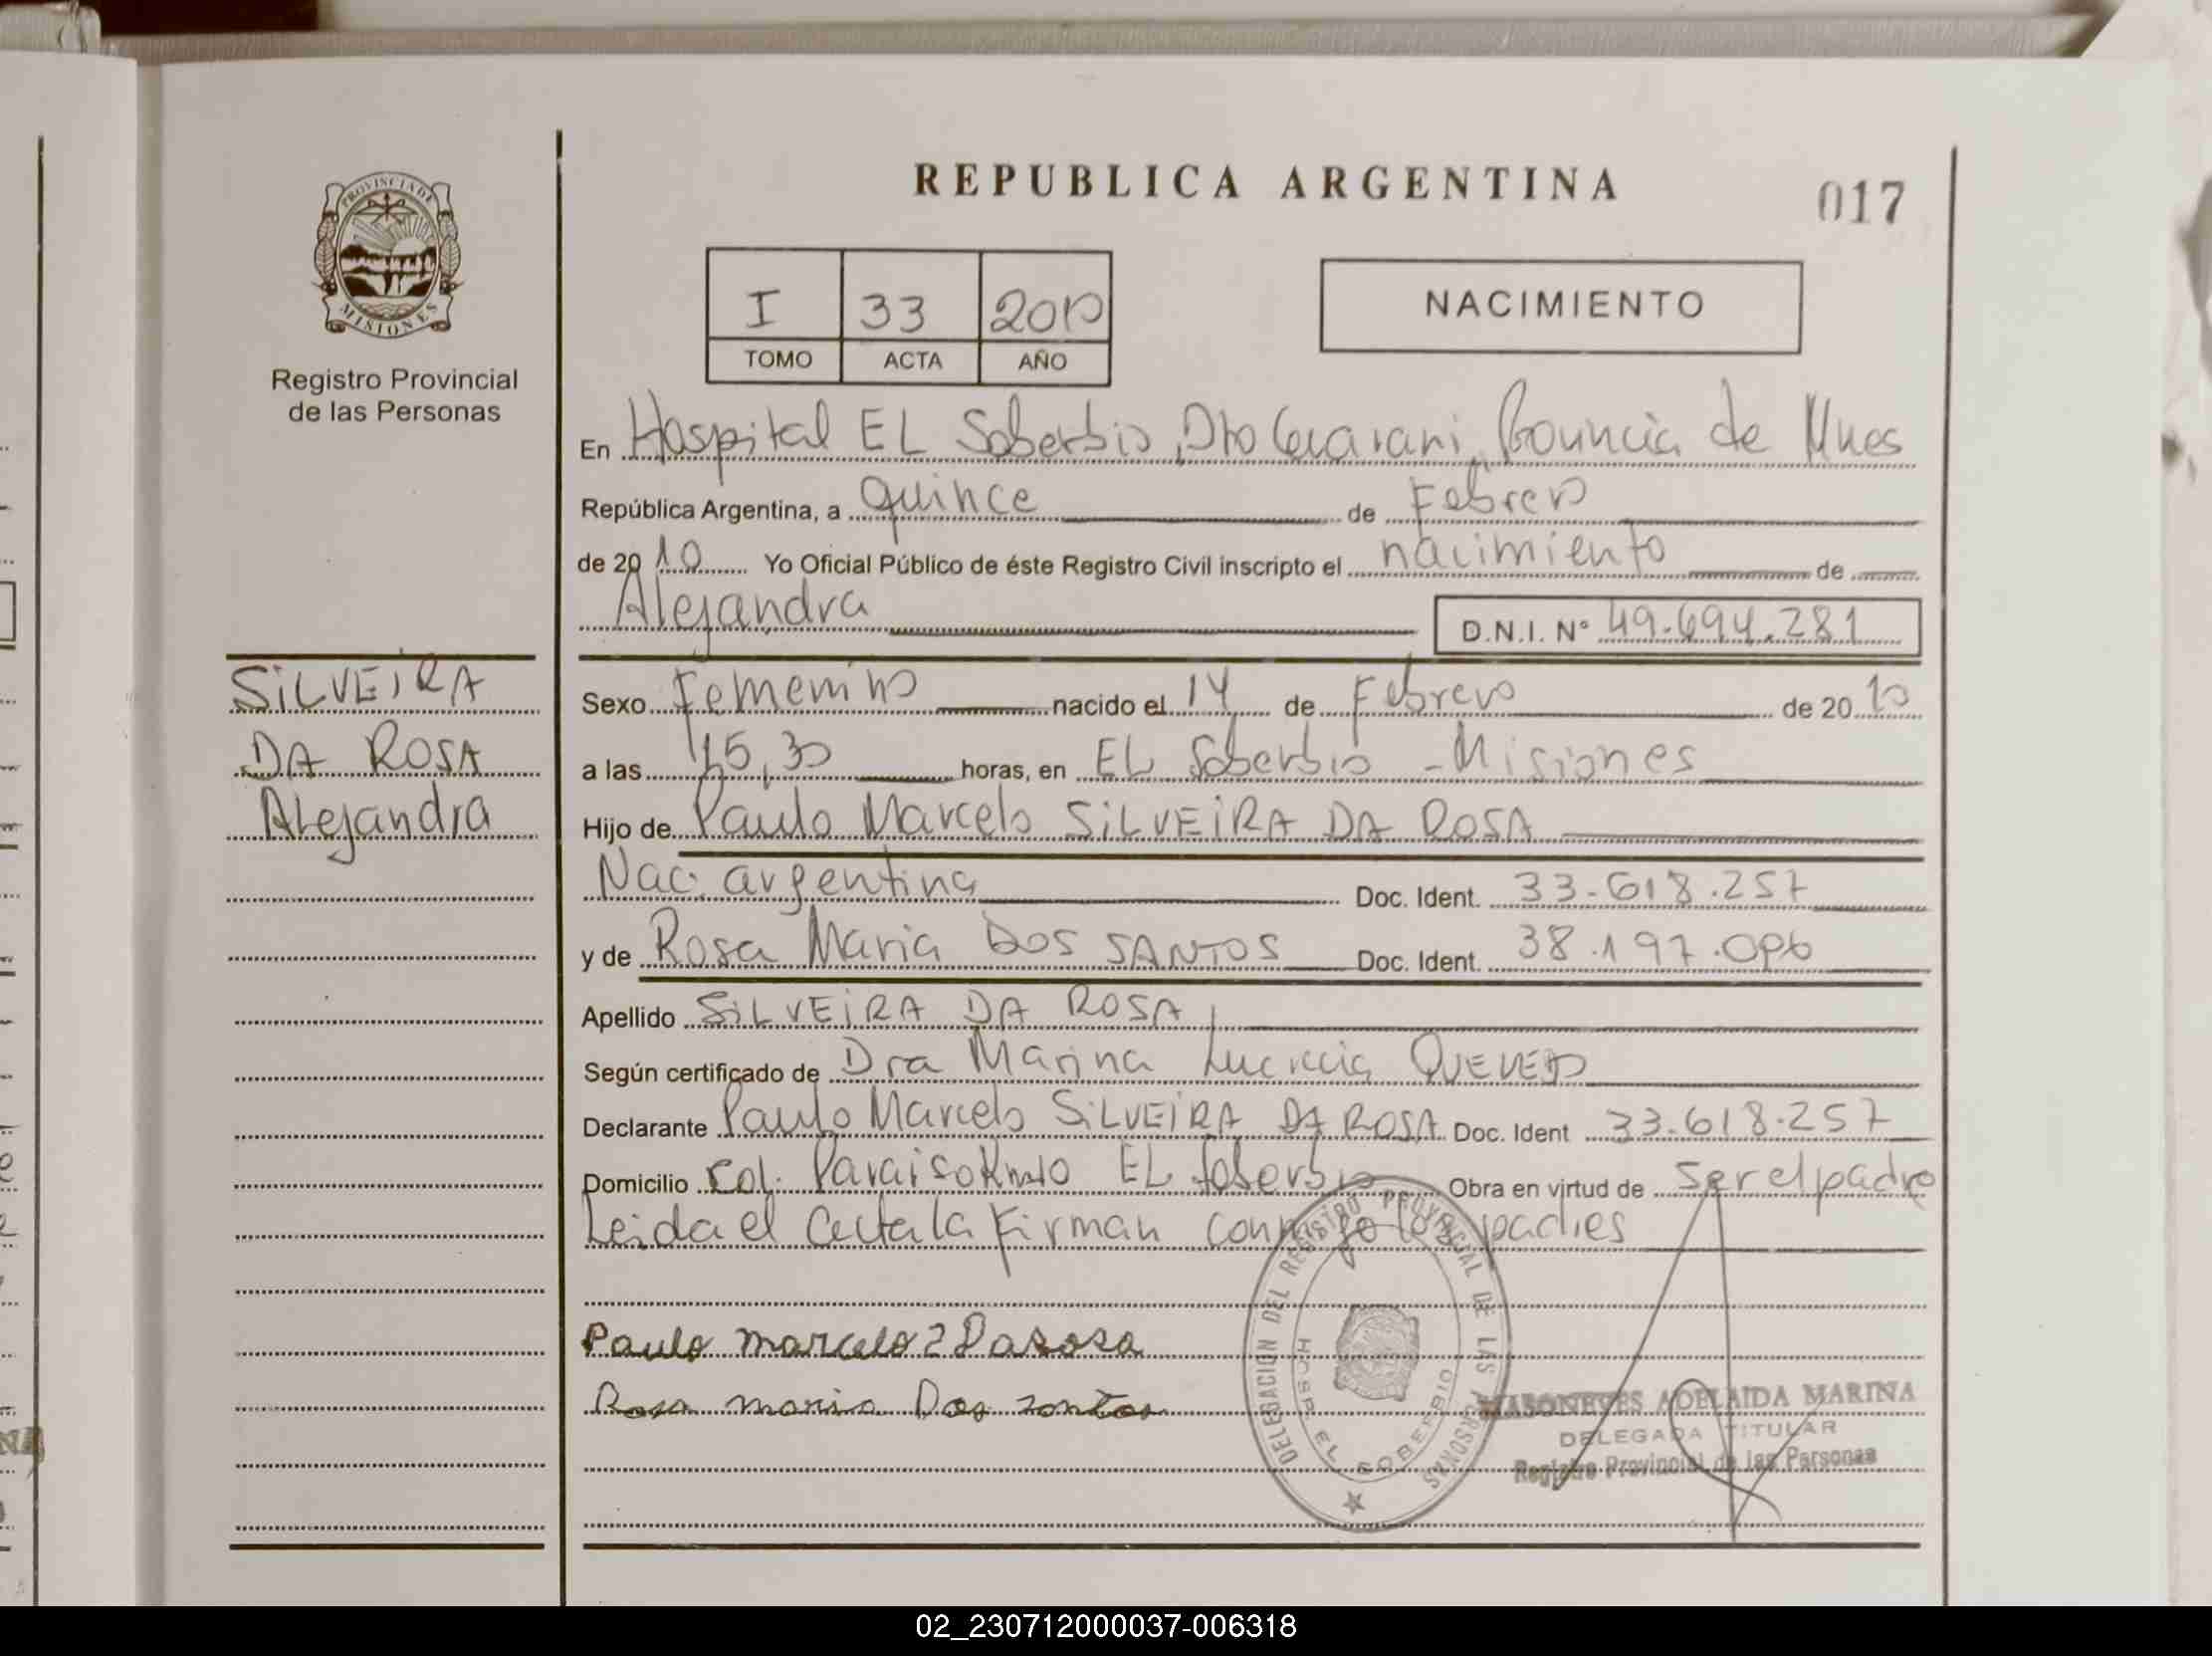 REPUBLICA ARGENTINA
017
PROVINCIA DE
MISIONES
Registro Provincial
de las Personas
I 33 2010
TOMO ACTA AÑO
NACIMIENTO
En Hospital EL Soberbio, Dto Guarani, Provincia de Mnes
República Argentina, a quince de Febrero
de 2010 Yo Oficial Público de éste Registro Civil inscripto el nacimiento de
Alejandra D.N.I. Nº 49.694.281
SiLVEiRA
DA ROSA
Alejandra
Sexo Femenino nacido el 14 de Febrero de 2010
a las 15,30 horas, en EL Soberbio - Misiones
Hijo de Paulo Marcelo SiLVEiRA DA ROSA
Nac. argentina Doc. Ident. 33.618.257
y de Rosa Maria DOS SANTOS Doc. Ident. 38.197.096
Apellido SiLVEiRA DA ROSA
Según certificado de Dra Marina QUEVEDO
Declarante Paulo Marcelo SiLVEiRA DA ROSA Doc. Ident 33.618.257
Domicilio Col. Paraiso Km10 EL Soberbio Obra en virtud de ser el padre
Leida el Acta la Firman conmigo los padres
Paulo marcelo 2 Darosa
Rosa maria Dos santos
DELEGACION DEL REGISTRO PROVINCIAL DE LAS PERSONAS
HOSP. EL SOBERBIO
MASONEVES ADELAIDA MARINA
DELEGADA TITULAR
Registro Provincial de las Personas
02_230712000037-006318